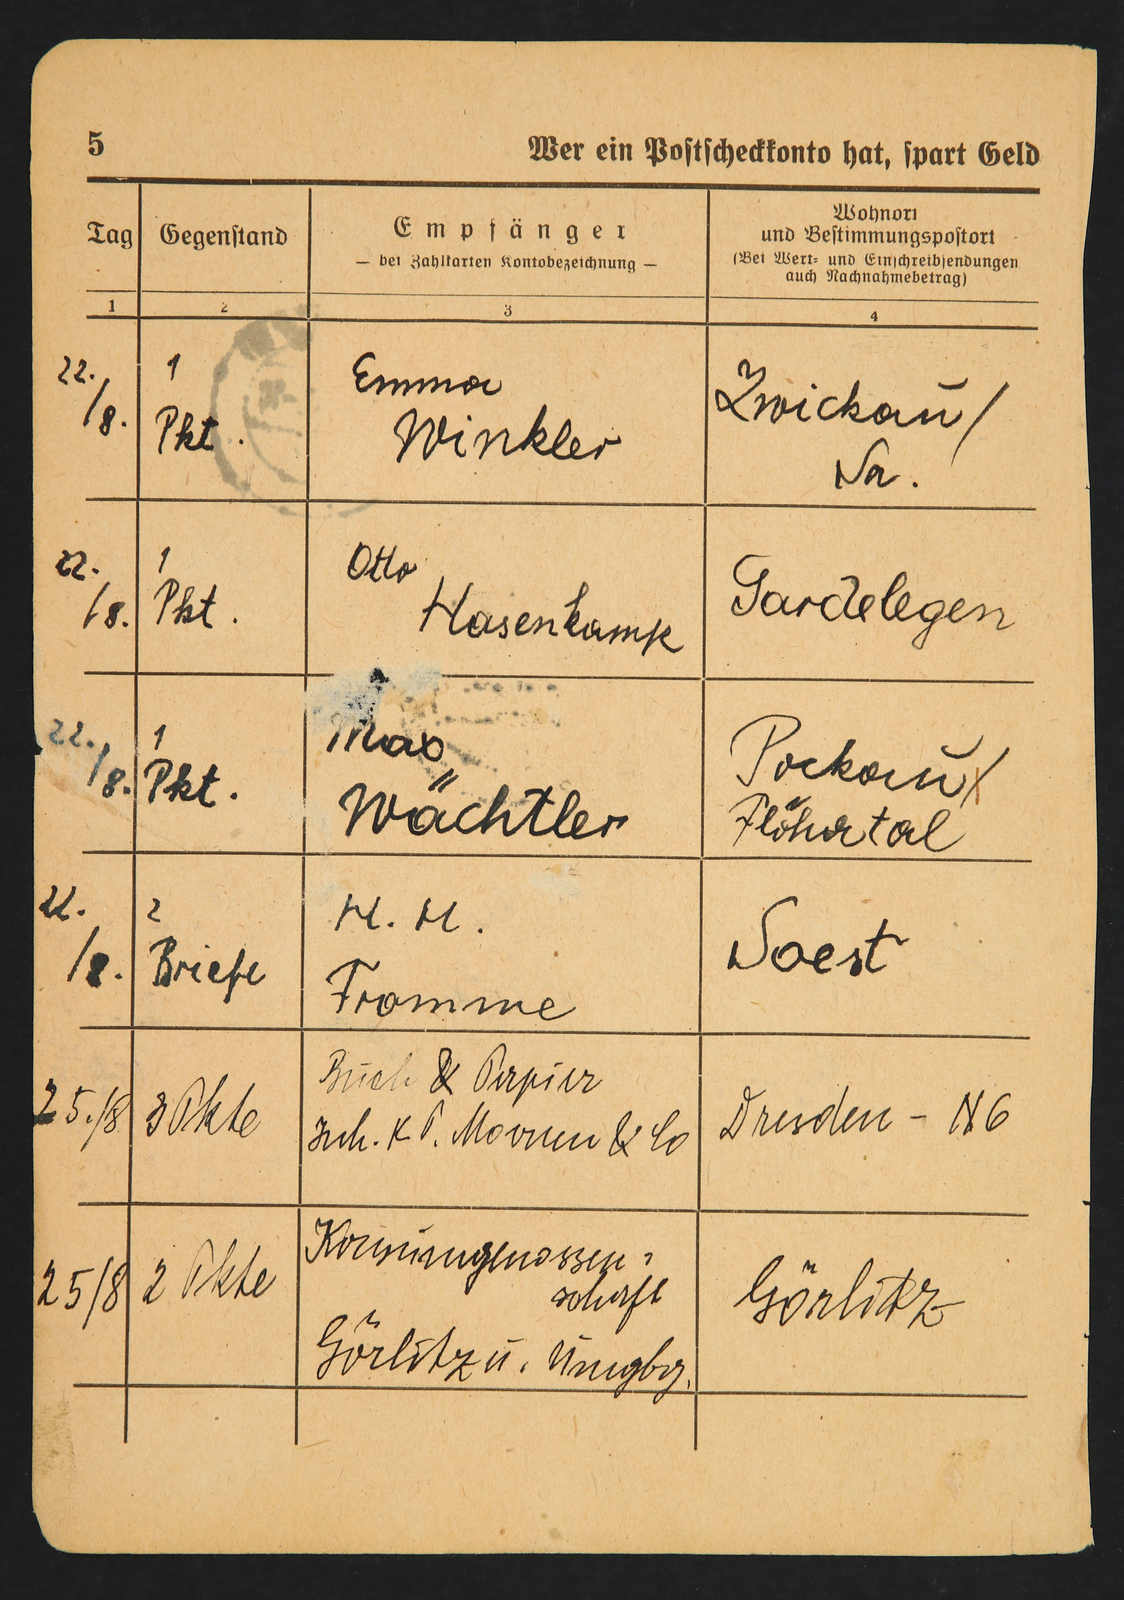 5
Wer ein Postscheckkonto hat, spart Geld
Tag
Gegenstand
Empfänger
— bei Zahlkarten Kontobezeichnung —
Wohnort
und Bestimmungspostort
(Bei Wert- und Einschreibsendungen
auch Nachnahmebetrag)
1
2
3
4
22./8.
1
Pkt.
Emma
Winkler
Zwickau/
Sa.
22./8.
1
Pkt.
Otto
Hasenkamp
Gardelegen
22./8.
1
Pkt.
Max
Wächtler
Pockau/
Flöhatal
22./8.
2
Briefe
H. H.
Fromme
Soest
25./8
3 Pkte
Buch & Papier
Inh. K. P. & Co
Dresden - N6
25/8
2 Pkte
Konsumgenossen-
schaft
Görlitz u. Umgbg.
Görlitz